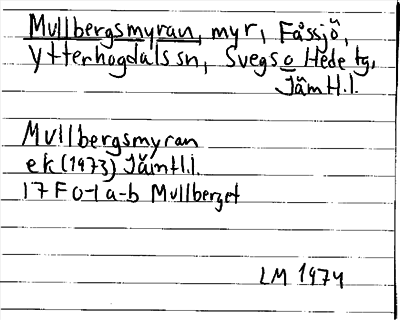 Mullbergsmyran, myr, Fåssjö,
Ytterhogdals sn, Svegs o Hede tg,
Jämtl.l.
Mullbergsmyran
ek (1973) Jämtl.l.
17 F 0-1 a-b Mullberget
LM 1974